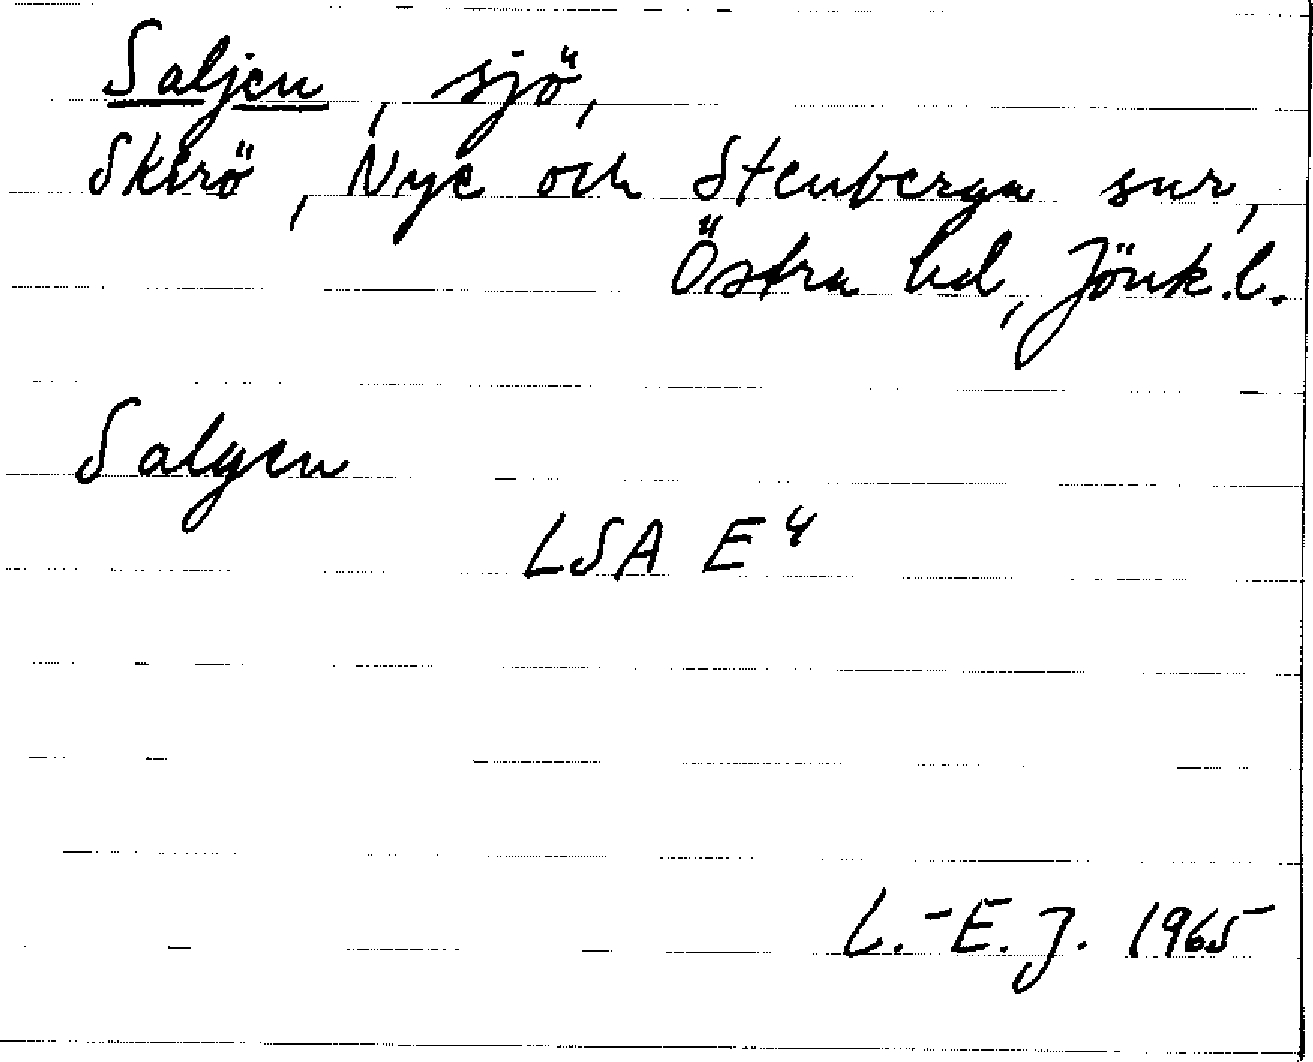 Saljen, sjö,
Skirö, Nye och Stenberga snr,
Östra hd, Jönk.l.
Salgen
LSA E4
L.-E. J. 1965